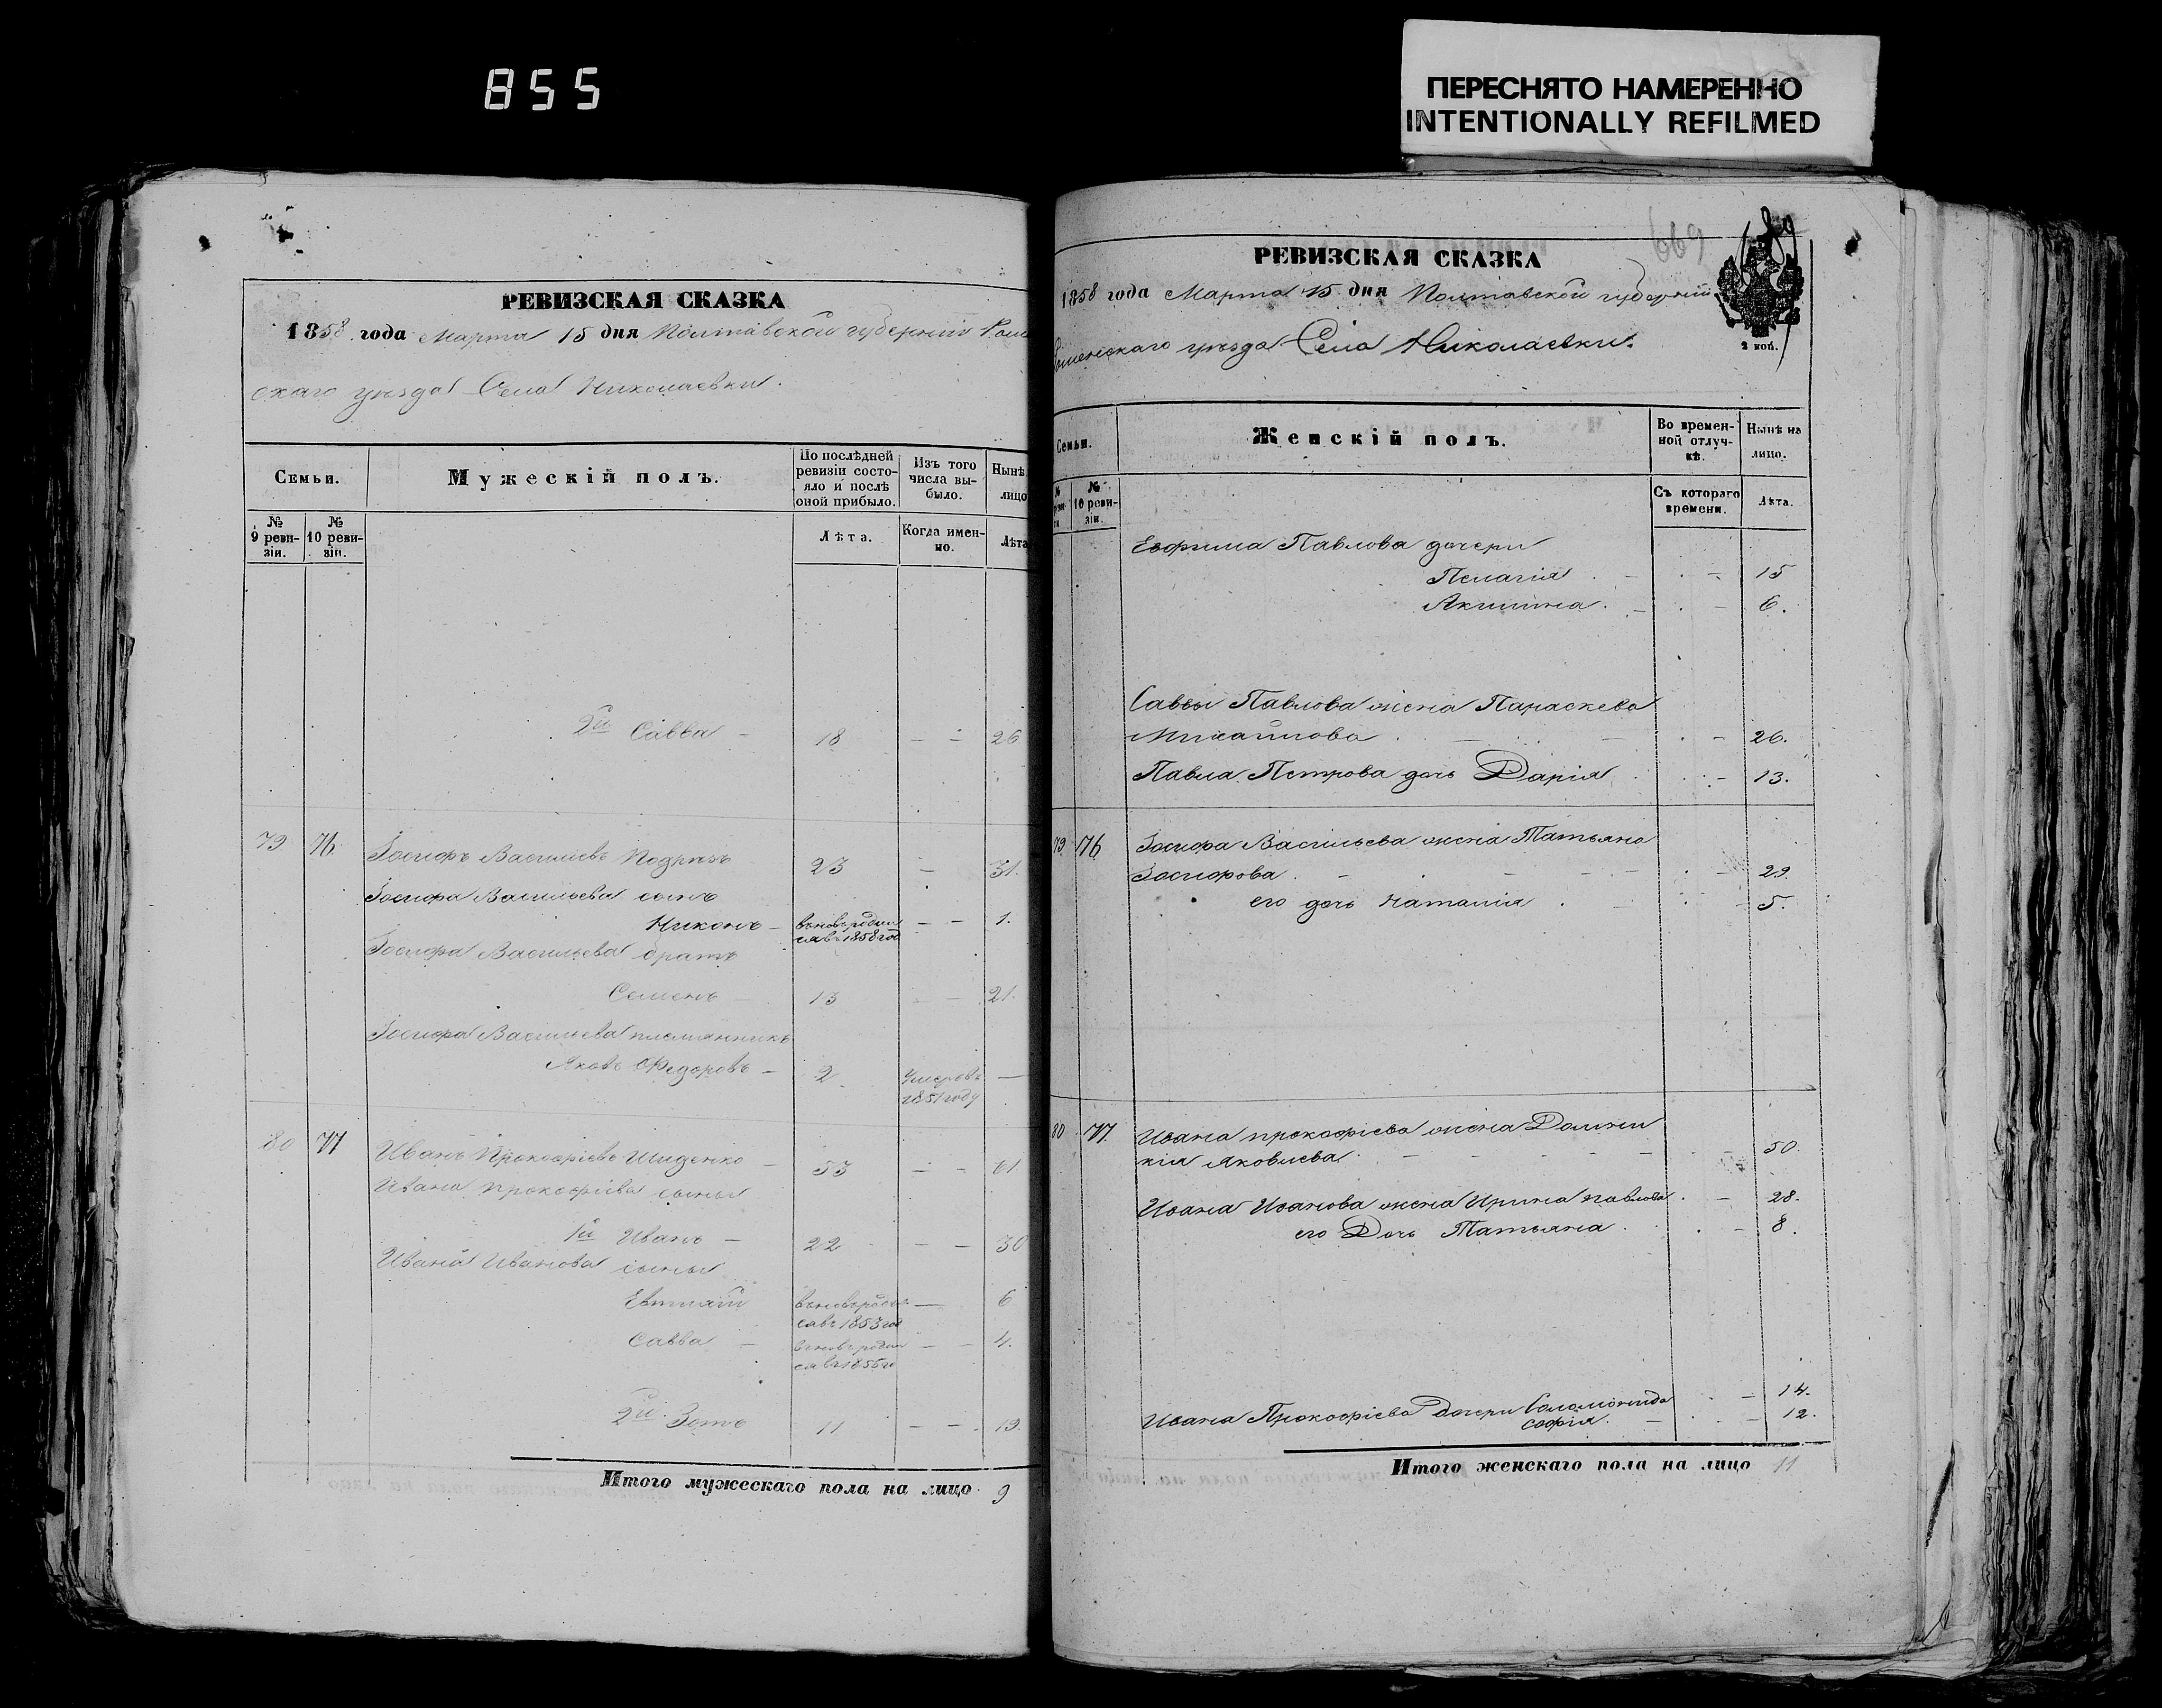 855
ПЕРЕСНЯТО НАМЕРЕННО
INTENTIONALLY REFILMED
РЕВИЗСКАЯ СКАЗКА
1858 года Марта 15 дня Полтавской губерніи Роме
скаго уезда Села Николаевки.
Семьи.
Мужескій полъ.
По послѣдней
ревизіи состо-
яло и послѣ
оной прибыло.
Изъ того
числа вы-
было.
Нынѣ
лицо
№
9 реви-
зіи.
№
10 реви-
зіи.
Лѣта.
Когда имен-
но.
Лѣта
2й Савва - 18 - - 26
79 76 Іосифъ Васильевъ 23 - 31.
Іосифа Васильева сынъ
Никонъ - вновь родил - - 1.
ся въ 1858 год
Іосифа Васильева братъ
Семенъ 13 - 21.
Іосифа Васильева племянникъ
Яковъ Федоровъ - 2 Умеръ въ -
1851 году
80 77 Иванъ Прокофіевъ Шиденко - 53 - - 61
Ивана Прокофіева сыны
1й Иванъ - 22 - - 30
Ивана Иванова сыны
Евтихій вновь роди - 6
ся въ 1853 го
Савва - вновь родил - - 4.
ся въ 1855 го
2й Зотъ 11 - - 19.
Итого мужескаго пола на лицо 9
669
РЕВИЗСКАЯ СКАЗКА
1858 года Марта 15 дня Полтавской губерніи
Роменскаго уезда Села Николаевки.
2 коп.
Семьи.
Женскій полъ.
Во времен-
ной отлуч-
кѣ.
Нынѣ на
лицо.
№
10 реви-
зіи.
Съ котораго
времени.
Лѣта.
Евфима Павлова дочери
Пелагія . - . - 15
Акилина . - . - 6.
Саввы Павлова жена Параскева
Михайлова . - . - 26.
Павла Петрова дочь Дарія . - 13.
79 76 Іосифа Васильева жена Татьяна
Іосифова . - . - 29
его дочь Наталія . - 5.
80 77. Ивана Прокофіева жена Домни
кія Яковлева . - - 50.
Ивана Иванова жена Ирина Павлова . - 28.
его Дочь Татьяна . - 8.
Ивана Прокофіева Дочери Соломонида - 14.
Софія . - 12.
Итого женскаго пола на лицо 11